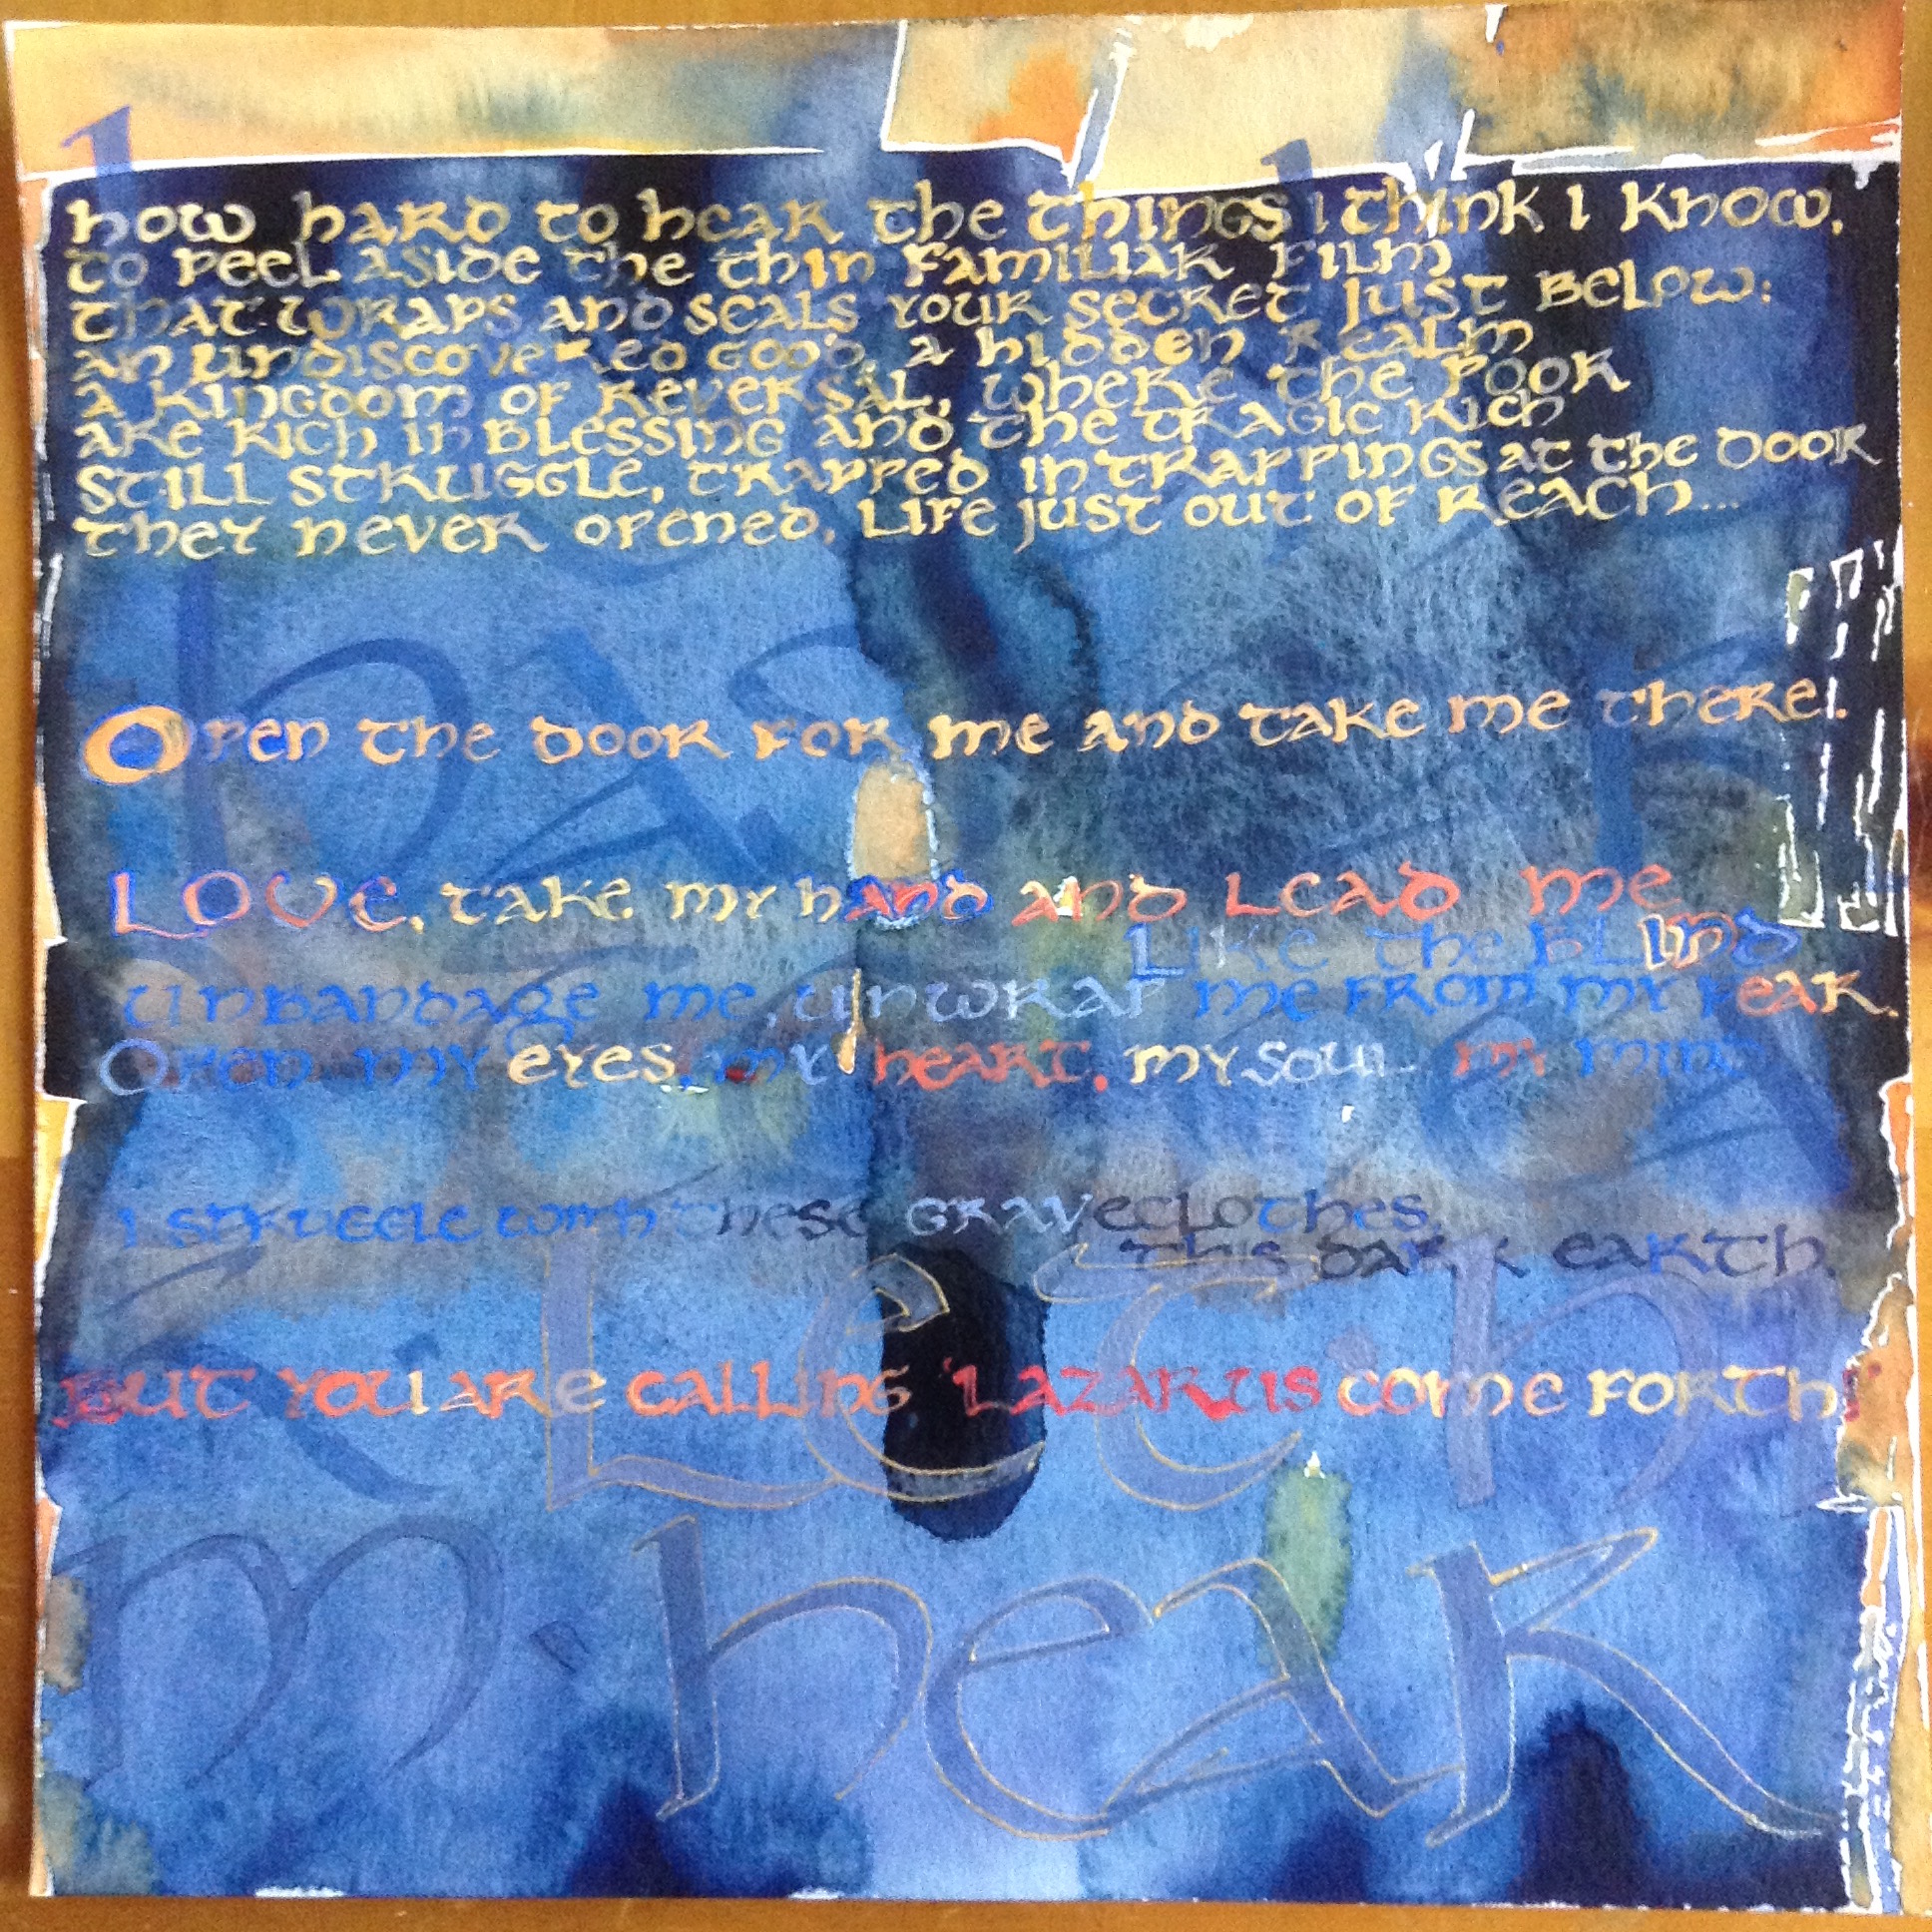 how hard to hear the things i think i know,
to peel aside the thin familiar film
that wraps and seals your secret just below:
an undiscovered good, a hidden realm
a kingdom of reversal, where the poor
are rich in blessing and the tragic rich
still struggle, trapped in trappings at the door
they never opened, life just out of reach...
Open the door for me and take me there.
Love, take my hand and lead me
like the blind
unbandage me, unwrap me from my fear.
Open my eyes, my heart, my soul my mind
i struggle with these graveclothes,
this dark earth,
but you are calling 'Lazarus come forth!'
hear